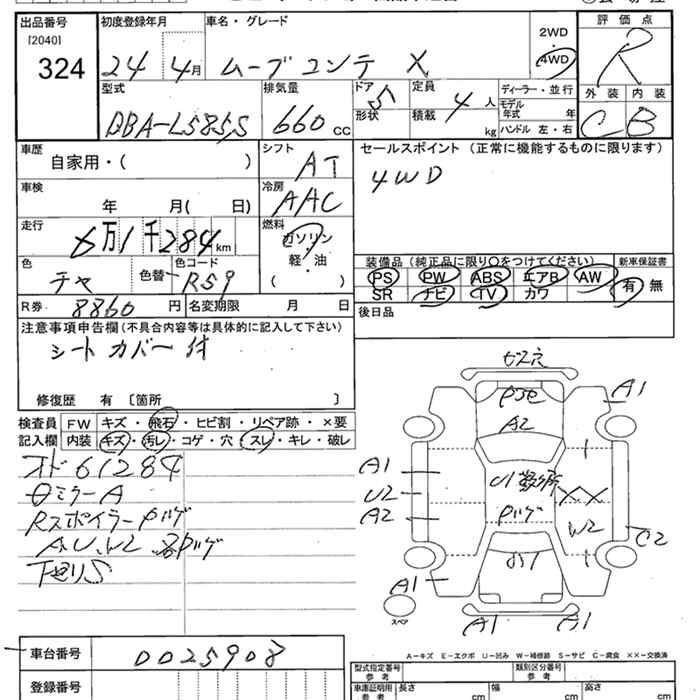 出品番号 初度登録年月 車名・グレード 2WD 評価点
[2040] 4WD
324 24 4月 ムーブ コンテ X R
型式 排気量 ドア 定員 ディーラー・並行 外装 内装
形状 5 積載 4人 モデル年式 年
DBA-L585S 660cc kg ハンドル 左・右 C B
車歴 シフト セールスポイント (正常に機能するものに限ります)
自家用・( ) AT 4WD
車検 冷房
年 月( 日) AAC
走行 燃料
6万1千284km ガソリン
色 色替 色コード 軽・油 装備品 (純正品に限り○をつけてください) 新車保証書
チャ R59 ( ・ ) PS PW ABS エアB AW 有 無
R券 8860円 名変期限 月 日 SR ナビ TV カワ
注意事項申告欄(不具合内容等は具体的に記入して下さい) 後日品
シートカバー付
修復歴 有 〔箇所 〕
検査員 FW キズ・飛石・ヒビ割・リペア跡・×要
記入欄 内装 キズ・汚レ・コゲ・穴・スレ・キレ・破レ
オド61284
θミラーA
RスポイラーPハゲ
A,U,W2 各Pハゲ
下廻りS
ビス穴
A2
A1
A1
U2
A2
U1数ヶ所
Pハゲ
XX
W2
C2
A1
A1
A1
スペア
A-キズ E-エクボ U-凹み W-補修跡 S-サビ C-腐食 ××-交換済
車台番号 0025908
登録番号
型式指定番号 参考 類別区分番号 参考
車庫証明用 参考 長さ cm 幅 cm 高さ cm